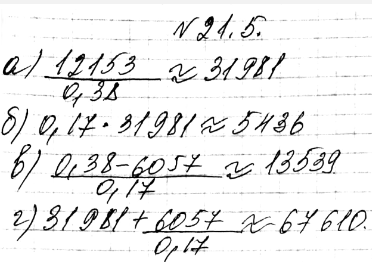 №21.5.
а) 12153 / 0,38 ≈ 31981
б) 0,17 · 31981 ≈ 5436
в) 0,38 - 6057 / 0,17 ≈ 13539
г) 31981 + 6057 / 0,17 ≈ 67610.